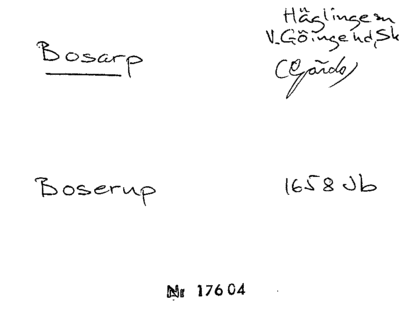 Häglinge sn
V. Göinge hd, Sk
Bosarp
(Gårda)
Boserup
1658 Jb
Nr 17604